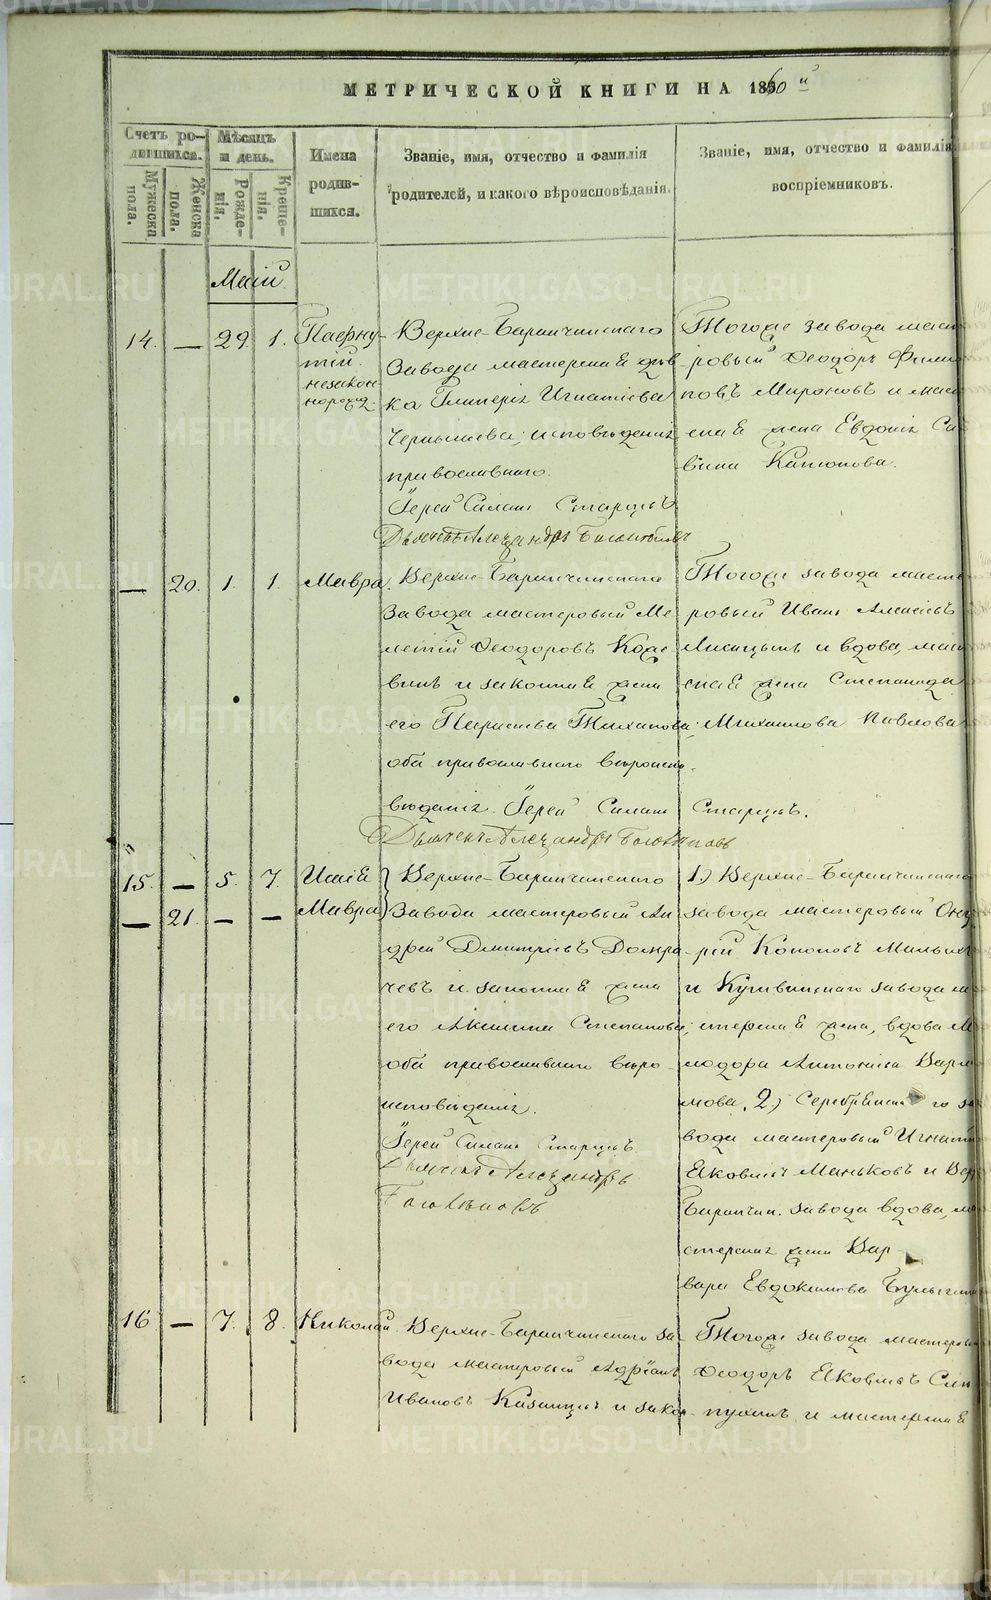 МЕТРИЧЕСКОЙ КНИГИ НА 1860 й
Счетъ ро-
дившихся.
Мужеска
пола.
Женска
пола.
Мѣсяцъ
и день.
Рожде-
нія.
Креще-
нія.
Имена
родив-
шихся.
Званіе, имя, отчество и фамилія
родителей, и какого вѣроисповѣданія.
Званіе, имя, отчество и фамилія
воспріемниковъ.
Маій.
14. — 29. 1.
Пафну-
тій
незакон-
норожд.
Верхне-Баранчинскаго
завода мастерская дѣв-
ка Гликерія Игнатіева
Чернышева, исповѣданія
православнаго.
Іерей Силан Старцевъ
Дьяченъ Александръ Боголѣповъ
Тогоже завода маст
ровый Ѳеодоръ Фили
повъ Мироновъ и мас
ская жена Евдокія Са
вина Катюпова.
— 20. 1. 1.
Мавра.
Верхне-Баранчинскаго
завода мастеровый Ме-
летій Ѳеодоровъ Коже
винъ и законная жена
его Параскева Тихонова;
оба православнаго вѣроиспо-
вѣданія. Іерей Силан Старцевъ.
Дьяченъ Александръ Боголѣповъ
Тогоже завода масте
ровый Иванъ Алексѣевъ
Лисицынъ и вдова, мас
ская жена Степанида
Михаилова Павлова
15. — 5. 7.
Исаія
— 21. — —
Мавра
Верхне-Баранчинскаго
завода мастеровый Ан-
дрей Дмитріевъ Домра-
чевъ и законная жена
его Акилина Степанова;
оба православнаго вѣро-
исповѣданія.
Іерей Силан Старцевъ
Дьяченъ Александръ
Боголѣповъ
1.) Верхне-Баранчинскаго
завода мастеровый
рій Кононовъ
и Кушвинскаго завода ма
стерская жена, вдова
Антоніева
2.) Серебрянскаго за
вода мастеровый Игнатій
Яковлевъ Маньковъ и Вер
Баранчин. завода вдова, ма
стерская жена Вар-
вара Евдокимова Булыгина
16 — 7. 8.
Николай.
Верхне-Баранчинскаго за-
вода мастеровый Адріанъ
Ивановъ Казанцевъ и закон-
Тогоже завода мастеров
Ѳеодоръ Яковлевъ
и мастерская